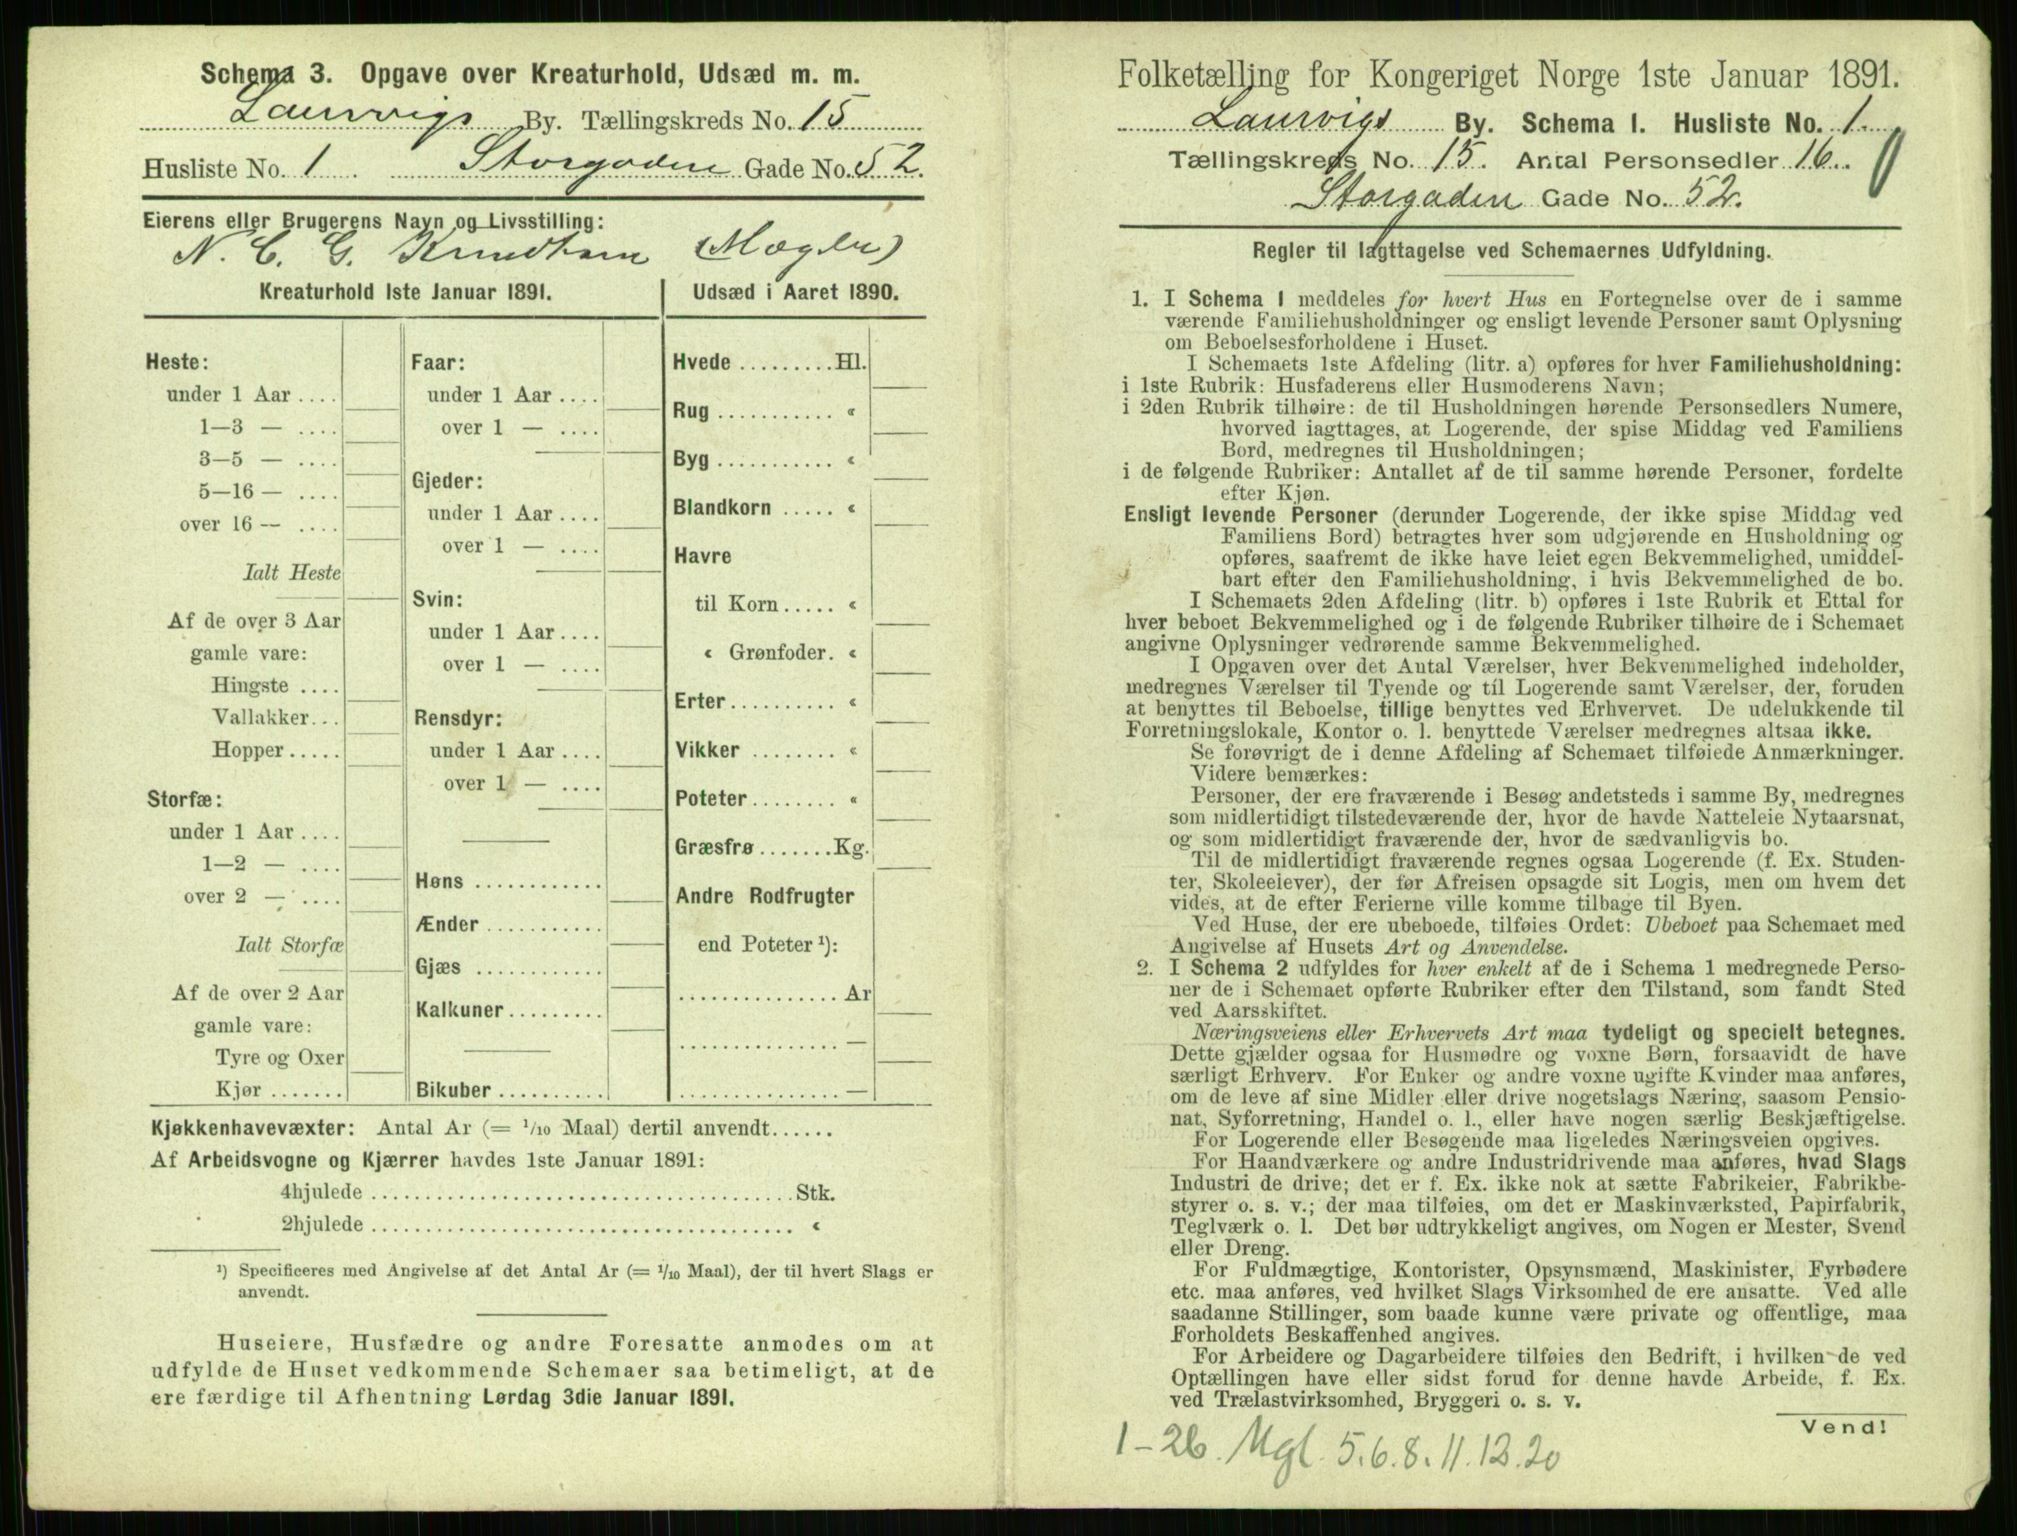 Schema 3. Opgave over Kreaturhold, Udsæd m. m.
Laurvigs By. Tællingskreds No. 15
Husliste No. 1 Storgaden Gade No. 52.
Eierens eller Brugerens Navn og Livsstilling:
N. C. G. Knudtsen (Mægler)
Kreaturhold 1ste Januar 1891.
Heste:
under 1 Aar ....
1—3 — ....
3—5 — ....
5—16 — ....
over 16 — ....
Ialt Heste
Af de over 3 Aar
gamle vare:
Hingste ....
Vallakker...
Hopper.....
Storfæ:
under 1 Aar ....
1—2 — ....
over 2 — ....
Ialt Storfæ
Af de over 2 Aar
gamle vare:
Tyre og Oxer
Kjør .......
Faar:
under 1 Aar ....
over 1 — ....
Gjeder:
under 1 Aar ....
over 1 — ....
Svin:
under 1 Aar....
over 1 — ....
Rensdyr:
under 1 Aar ....
over 1 — ....
Høns ............
Ænder ...........
Gjæs ............
Kalkuner.........
Bikuber ..........
Udsæd i Aaret 1890.
Hvede .........Hl.
Rug ........... «
Byg ........... «
Blandkorn ..... «
Havre
til Korn..... «
« Grønfoder. «
Erter.......... «
Vikker ........ «
Poteter........ «
Græsfrø .......Kg.
Andre Rodfrugter
end Poteter ¹):
............... Ar
............... —
............... —
Kjøkkenhavevæxter: Antal Ar (= 1/10 Maal) dertil anvendt......
Af Arbeidsvogne og Kjærrer havdes 1ste Januar 1891:
4hjulede ....................................... Stk.
2hjulede ....................................... «
¹) Specificeres med Angivelse af det Antal Ar (= 1/10 Maal), der til hvert Slags er
anvendt.
Huseiere, Husfædre og andre Foresatte anmodes om at
udfylde de Huset vedkommende Schemaer saa betimeligt, at de
ere færdige til Afhentning Lørdag 3die Januar 1891.
Folketælling for Kongeriget Norge 1ste Januar 1891.
Laurvigs By. Schema 1. Husliste No. 1.
Tællingskreds No. 15. Antal Personsedler 16.
Storgaden Gade No. 52.
Regler til Iagttagelse ved Schemaernes Udfyldning.
1. I Schema 1 meddeles for hvert Hus en Fortegnelse over de i samme
værende Familiehusholdninger og ensligt levende Personer samt Oplysning
om Beboelsesforholdene i Huset.
I Schemaets 1ste Afdeling (litr. a) opføres for hver Familiehusholdning:
i 1ste Rubrik: Husfaderens eller Husmoderens Navn;
i 2den Rubrik tilhøire: de til Husholdningen hørende Personsedlers Numere,
hvorved iagttages, at Logerende, der spise Middag ved Familiens
Bord, medregnes til Husholdningen;
i de følgende Rubriker: Antallet af de til samme hørende Personer, fordelte
efter Kjøn.
Ensligt levende Personer (derunder Logerende, der ikke spise Middag ved
Familiens Bord) betragtes hver som udgjørende en Husholdning og
opføres, saafremt de ikke have leiet egen Bekvemmelighed, umiddel-
bart efter den Familiehusholdning, i hvis Bekvemmelighed de bo.
I Schemaets 2den Afdeling (litr. b) opføres i 1ste Rubrik et Ettal for
hver beboet Bekvemmelighed og i de følgende Rubriker tilhøire de i Schemaet
angivne Oplysninger vedrørende samme Bekvemmelighed.
I Opgaven over det Antal Værelser, hver Bekvemmelighed indeholder,
medregnes Værelser til Tyende og til Logerende samt Værelser, der, foruden
at benyttes til Beboelse, tillige benyttes ved Erhvervet. De udelukkende til
Forretningslokale, Kontor o. l. benyttede Værelser medregnes altsaa ikke.
Se forøvrigt de i denne Afdeling af Schemaet tilføiede Anmærkninger.
Videre bemærkes:
Personer, der ere fraværende i Besøg andetsteds i samme By, medregnes
som midlertidigt tilstedeværende der, hvor de havde Natteleie Nytaarsnat,
og som midlertidigt fraværende der, hvor de sædvanligvis bo.
Til de midlertidigt fraværende regnes ogsaa Logerende (f. Ex. Studen-
ter, Skoleelever), der før Afreisen opsagde sit Logis, men om hvem det
vides, at de efter Ferierne ville komme tilbage til Byen.
Ved Huse, der ere ubeboede, tilføies Ordet: Ubeboet paa Schemaet med
Angivelse af Husets Art og Anvendelse.
2. I Schema 2 udfyldes for hver enkelt af de i Schema 1 medregnede Perso-
ner de i Schemaet opførte Rubriker efter den Tilstand, som fandt Sted
ved Aarsskiftet.
Næringsveiens eller Erhvervets Art maa tydeligt og specielt betegnes.
Dette gjælder ogsaa for Husmødre og voxne Børn, forsaavidt de have
særligt Erhverv. For Enker og andre voxne ugifte Kvinder maa anføres,
om de leve af sine Midler eller drive nogetslags Næring, saasom Pensio-
nat, Syforretning, Handel o. l., eller have nogen særlig Beskjæftigelse.
For Logerende eller Besøgende maa ligeledes Næringsveien opgives.
For Haandværkere og andre Industridrivende maa anføres, hvad Slags
Industri de drive; det er f. Ex. ikke nok at sætte Fabrikeier, Fabrikbe-
styrer o. s. v.; der maa tilføies, om det er Maskinværksted, Papirfabrik,
Teglværk o. l. Det bør udtrykkeligt angives, om Nogen er Mester, Svend
eller Dreng.
For Fuldmægtige, Kontorister, Opsynsmænd, Maskinister, Fyrbødere
etc. maa anføres, ved hvilket Slags Virksomhed de ere ansatte. Ved alle
saadanne Stillinger, som baade kunne være private og offentlige, maa
Forholdets Beskaffenhed angives.
For Arbeidere og Dagarbeidere tilføies den Bedrift, i hvilken de ved
Optællingen have eller sidst forud for denne havde Arbeide, f. Ex.
ved Trælastvirksomhed, Bryggeri o. s. v.
Vend!
1-26. Mgl. 5.6.8.11.12.20